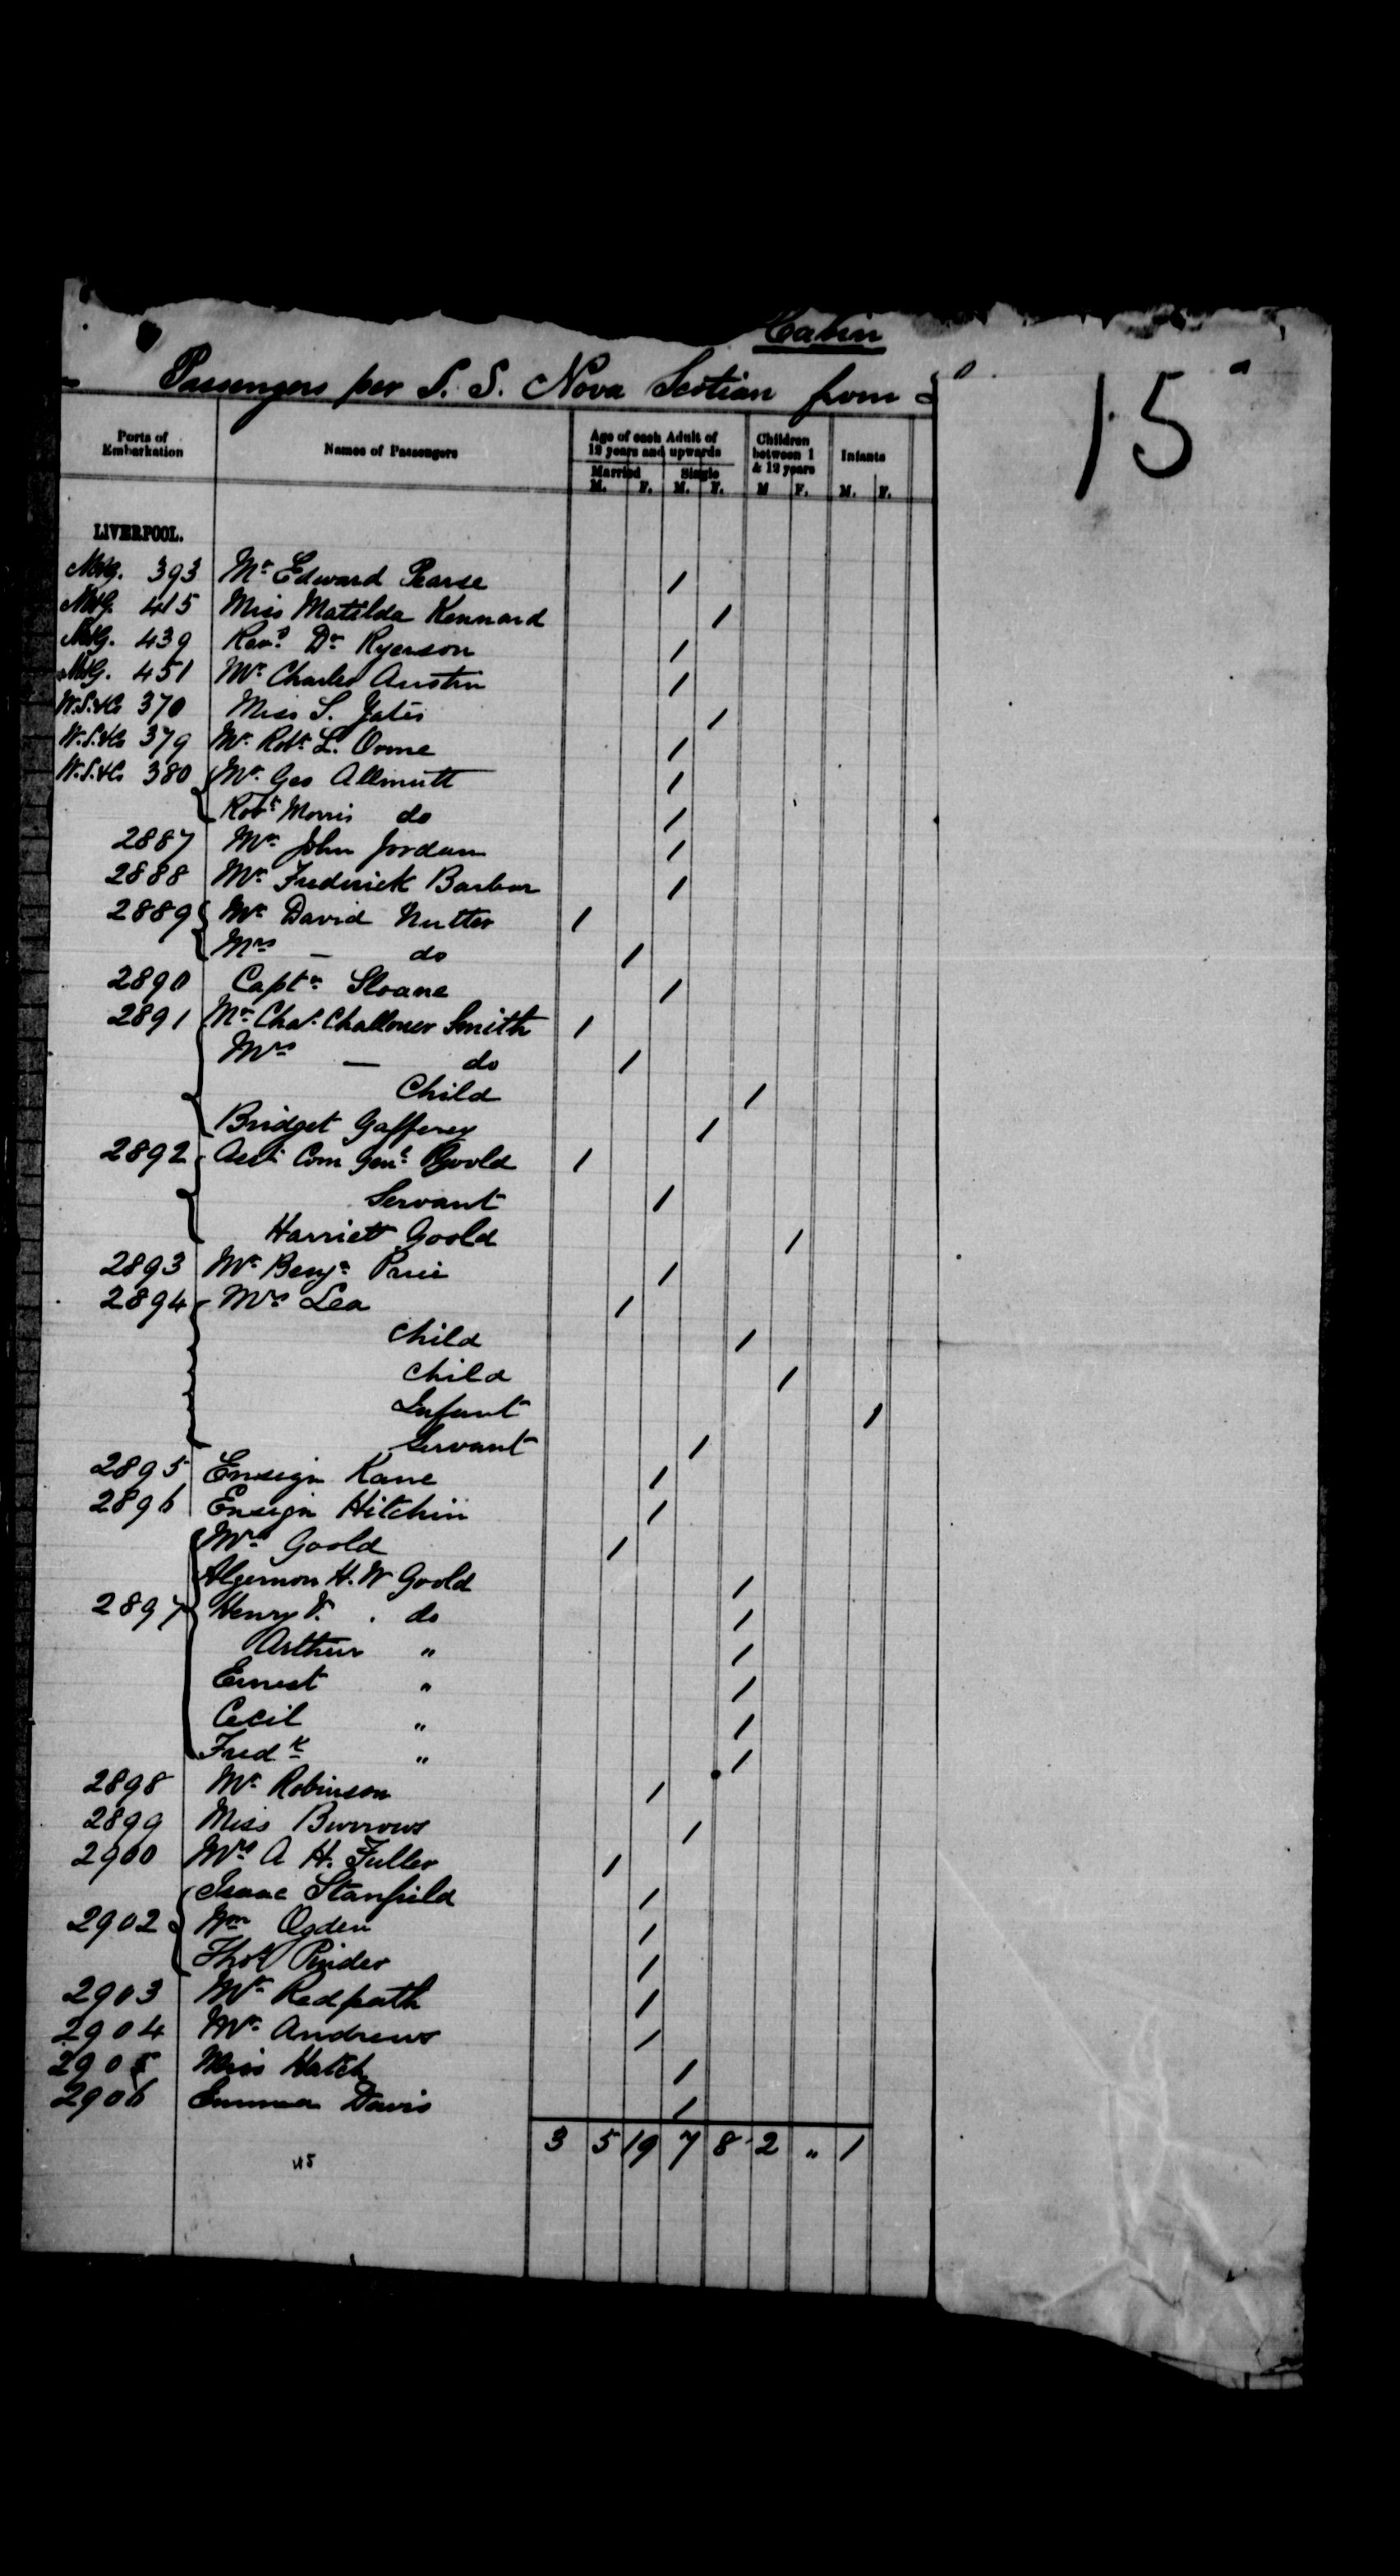 Cabin
Passengers per S. S. Nova Scotian from
15
Ports of Embarkation Names of Passengers Age of each Adult of 12 years and upwards Children between 1 & 12 years Infants
Married Single
M. F. M. F. M F. M. F.
LIVERPOOL.
393 Mr Edward Pearse /
415 Miss Matilda Kennard /
439 Revd Dr Ryerson /
451 Mr Charles Austin /
W.S.&Co 370 Miss S. Yates /
W.S.&Co 379 Mr Robt L. Orme /
W.S.&Co 380 Mr Geo Allmutt /
Robt Morris do /
2887 Mr John Jordan /
2888 Mr Frederick Barber /
2889 Mr David Nutter /
Mrs — do /
2890 Captn Sloane /
2891 Mr Chas. Challoner Smith /
Mrs — do /
Child /
Bridget Gafferey /
2892 Asst Com Genl Goold /
Servant /
Harriett Goold /
2893 Mr Benjn Price /
2894 Mrs Lea /
Child /
Child /
Infant /
Servant /
2895 Ensign Kane /
2896 Ensign Hitchin /
Mrs Goold /
Algernon H. W Goold /
2897 Henry V. do /
Arthur " /
Ernest " /
Cecil " /
Fredk " /
2898 Mr Robinson /
2899 Miss Burrows /
2900 Mrs A H. Fuller /
Isaac Stanfield /
2902 Wm Ogden /
Thos Pinder /
2903 Mr Redpath /
2904 Mr Andrews /
2905 Miss Hatch /
2906 Emma Davis /
3 5 19 7 8 2 " 1
45